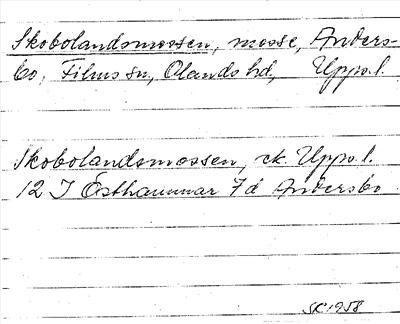 Skobolandsmossen, mosse, Anders-
bo, Films sn, Olands hd, Upps.l.
Skobolandsmossen, ek. Upps.l.
12 I Östhammar 7d Andersbo
SK 1958